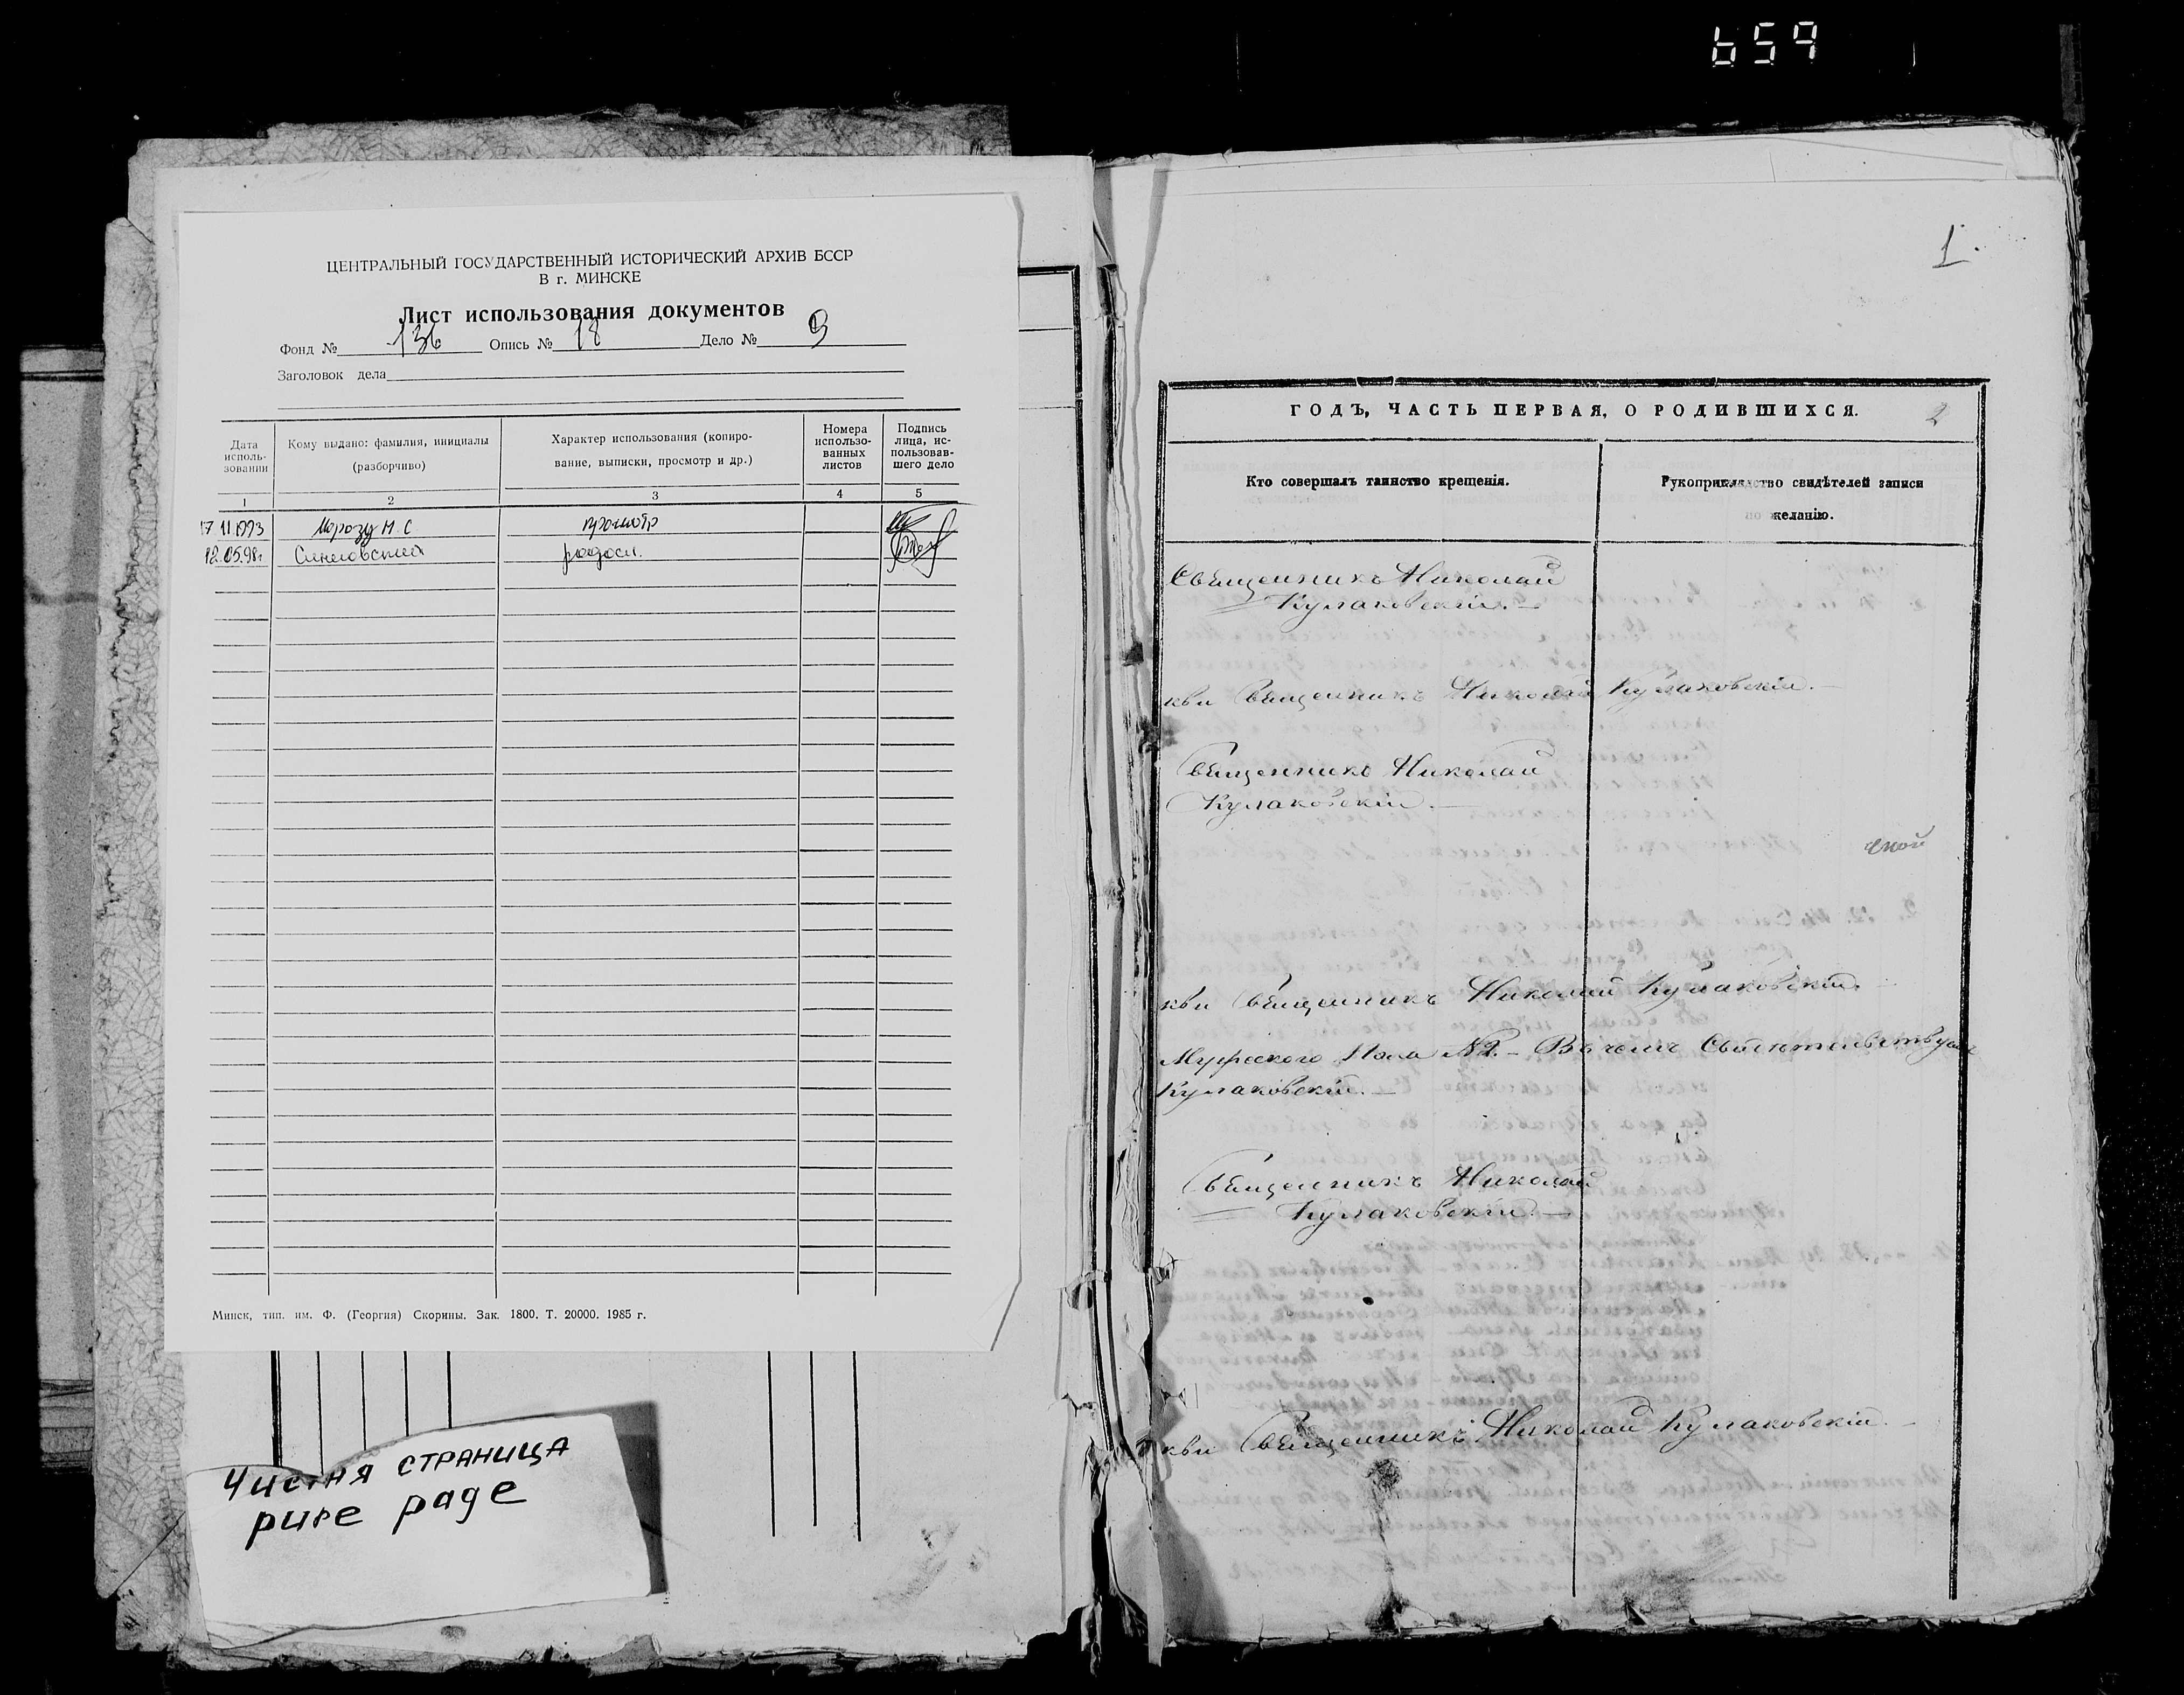 659
ЦЕНТРАЛЬНЫЙ ГОСУДАРСТВЕННЫЙ ИСТОРИЧЕСКИЙ АРХИВ БССР
В г. МИНСКЕ
Лист использования документов
Фонд № 136 Опись № 18 Дело № 9
Заголовок дела
Дата исполь-
зовании
Кому выдано: фамилия, инициалы
(разборчиво)
Характер использования (копиро-
вание, выписки, просмотр и др.)
Номера
использо-
ванных
листов
Подпись
лица, ис-
пользовав-
шего дело
1 2 3 4 5
17.11.1993 Морозу Н. С. просмотр
12.05.98г. родосл.
Минск, тип. им. Ф. (Георгия) Скорины. Зак. 1800. Т. 20000. 1985 г.
Чистая страница
pure page
1.
ГОДЪ, ЧАСТЬ ПЕРВАЯ, О РОДИВШИХСЯ. 2
Кто совершалъ таинство крещенія.
Рукоприкладство свидѣтелей записи
по желанію.
Священникъ Николай
Кулаковскій.
кви Священникъ Николай Кулаковскій.
Священникъ Николай
Кулаковскій.
ской
кви Священникъ Николай Кулаковскій.
№ 2. – Въ чемъ
Кулаковскій.
Священникъ Николай
Кулаковскій.
кви Священникъ Николай Кулаковскій.